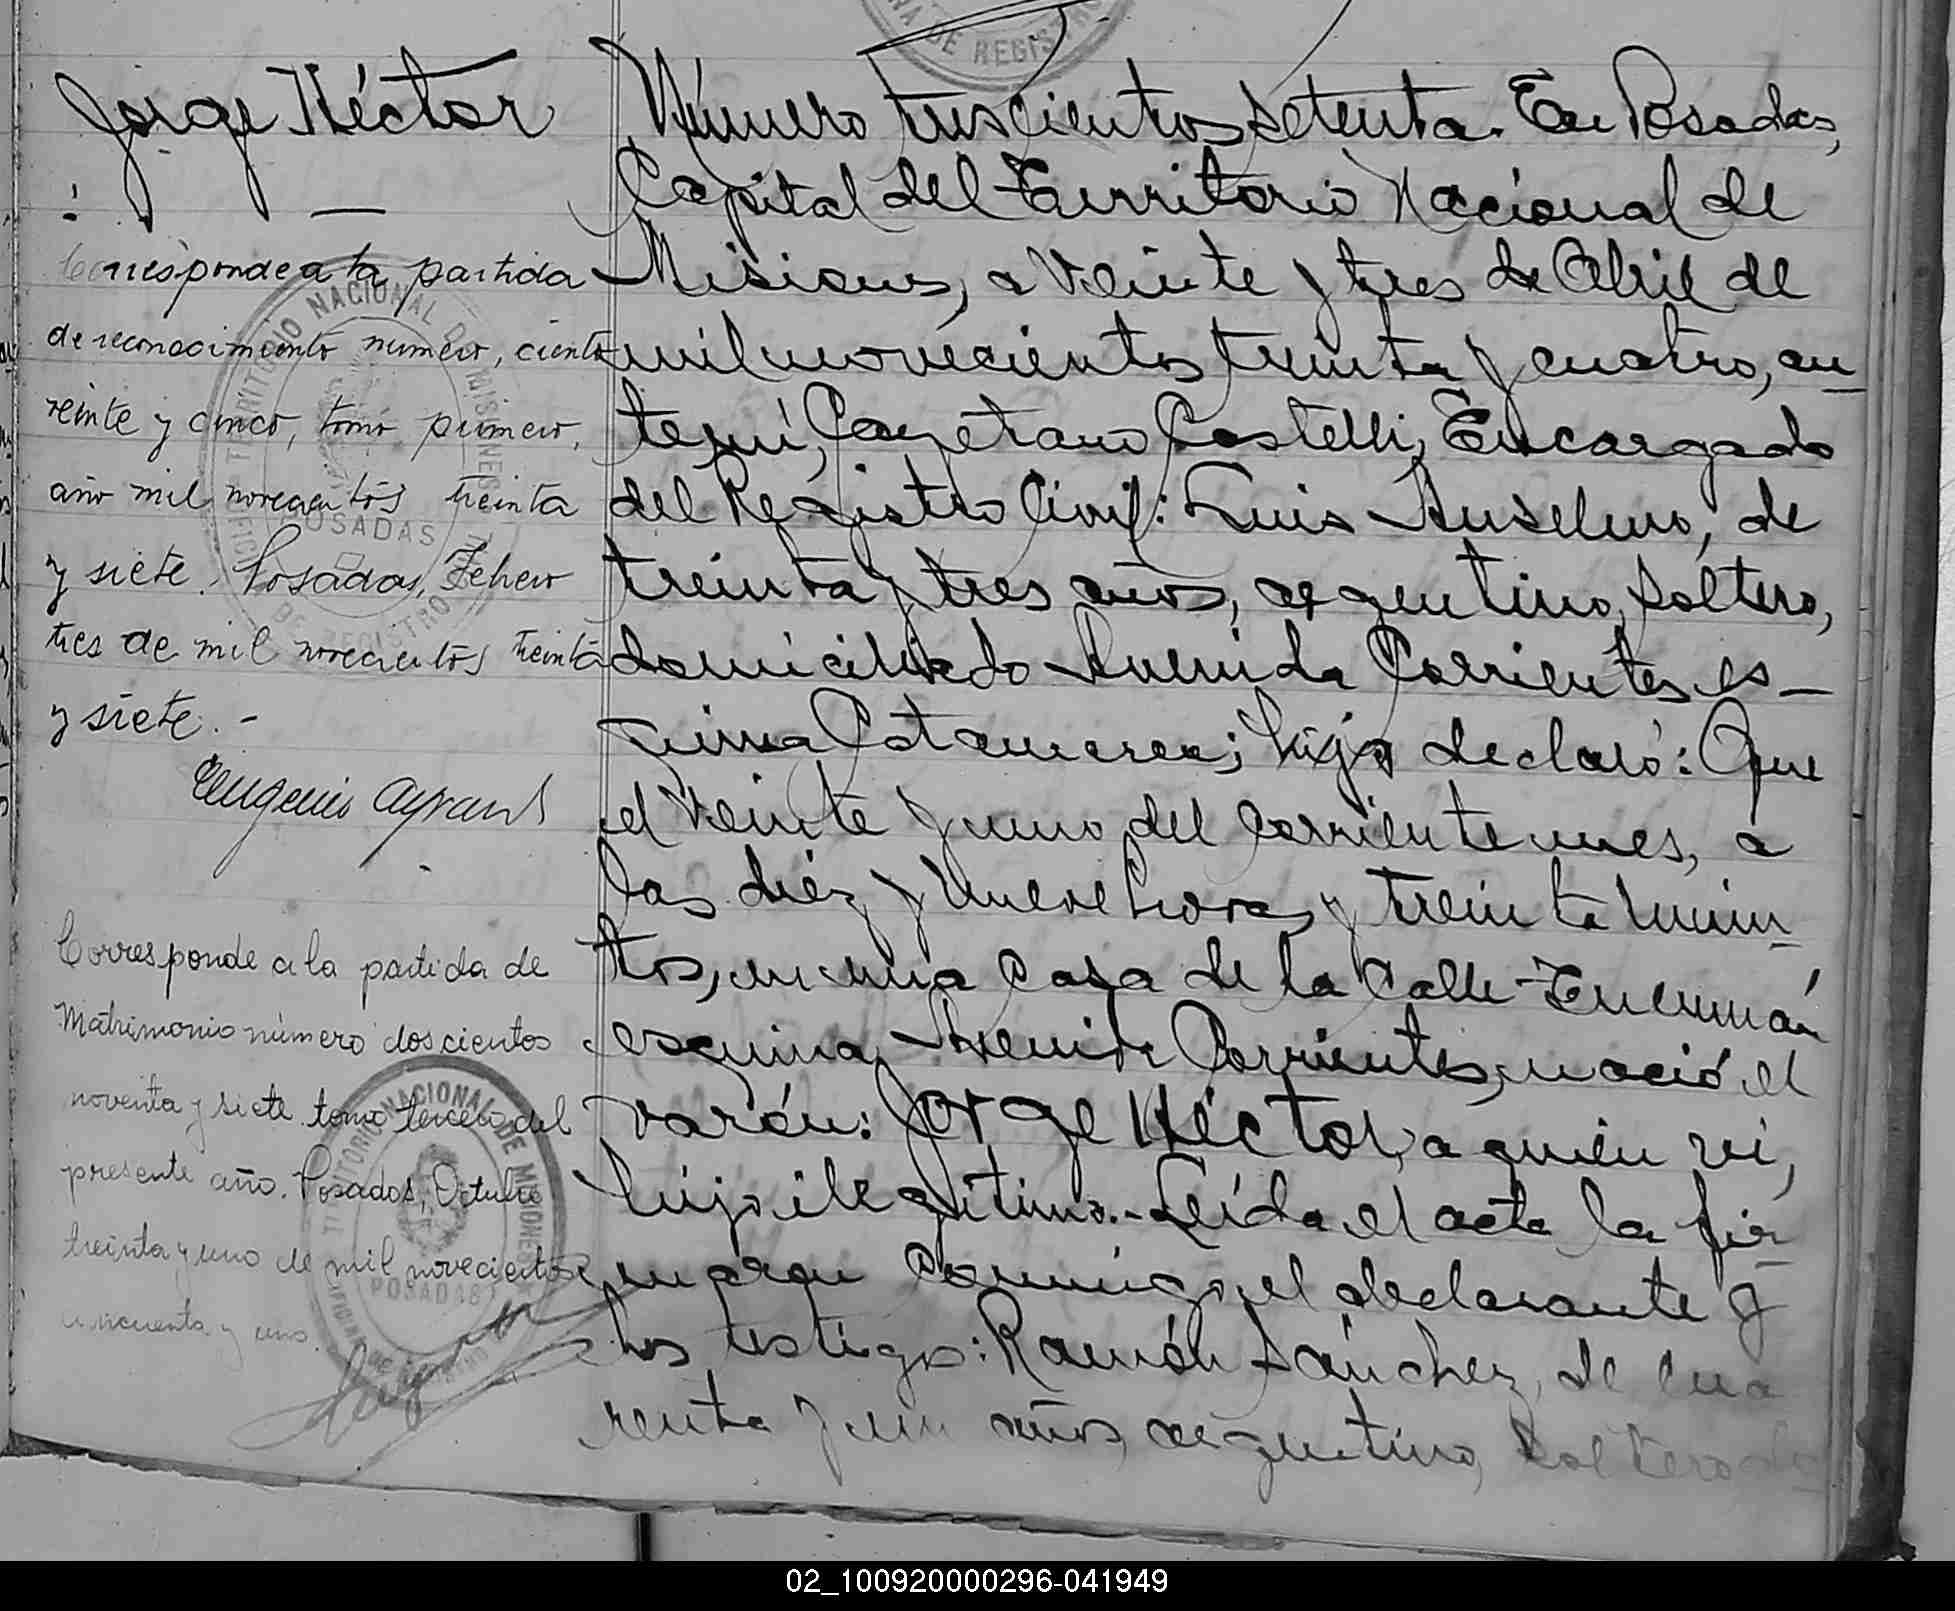 Jorge Héctor
Corresponde a la partida
de reconocimiento número, ciento
veinte y cinco, tomo primero,
año mil novecientos treinta
y siete. Posadas, Febrero
tres de mil novecientos treinta
y siete.-
Eugenio
Corresponde a la partida de
Matrimonio número doscientos
noventa y siete tomo tercero del
presente año. Posadas, Octubre
treinta y uno de mil novecientos
cincuenta y uno.
TERRITORIO NACIONAL DE MISIONES
POSADAS
DE REGISTRO
Número trescientos setenta. En Posadas,
Capital del Territorio Nacional de
Misiones, a veinte y tres de Abril de
mil novecientos treinta y cuatro, an-
te mí, Cayetano Castelli, Encargado
del Registro Civil: Luis Anselmo, de
treinta y tres años, argentino, soltero,
domiciliado Avenida Corrientes es-
quina Catamarca; hijo declaró: Que
el veinte y uno del corriente mes, a
las diéz y nueve horas y treinta minu-
tos, en una casa de la calle Tucumán
esquina Avenida Corrientes, nació el
varón: Jorge Héctor, a quien vi,
hijo ilegítimo.- Leída el acta la fir-
maron conmigo, el declarante y
los testigos: Ramón Sánchez, de cua
renta y un años, argentino, soltero
02_100920000296-041949